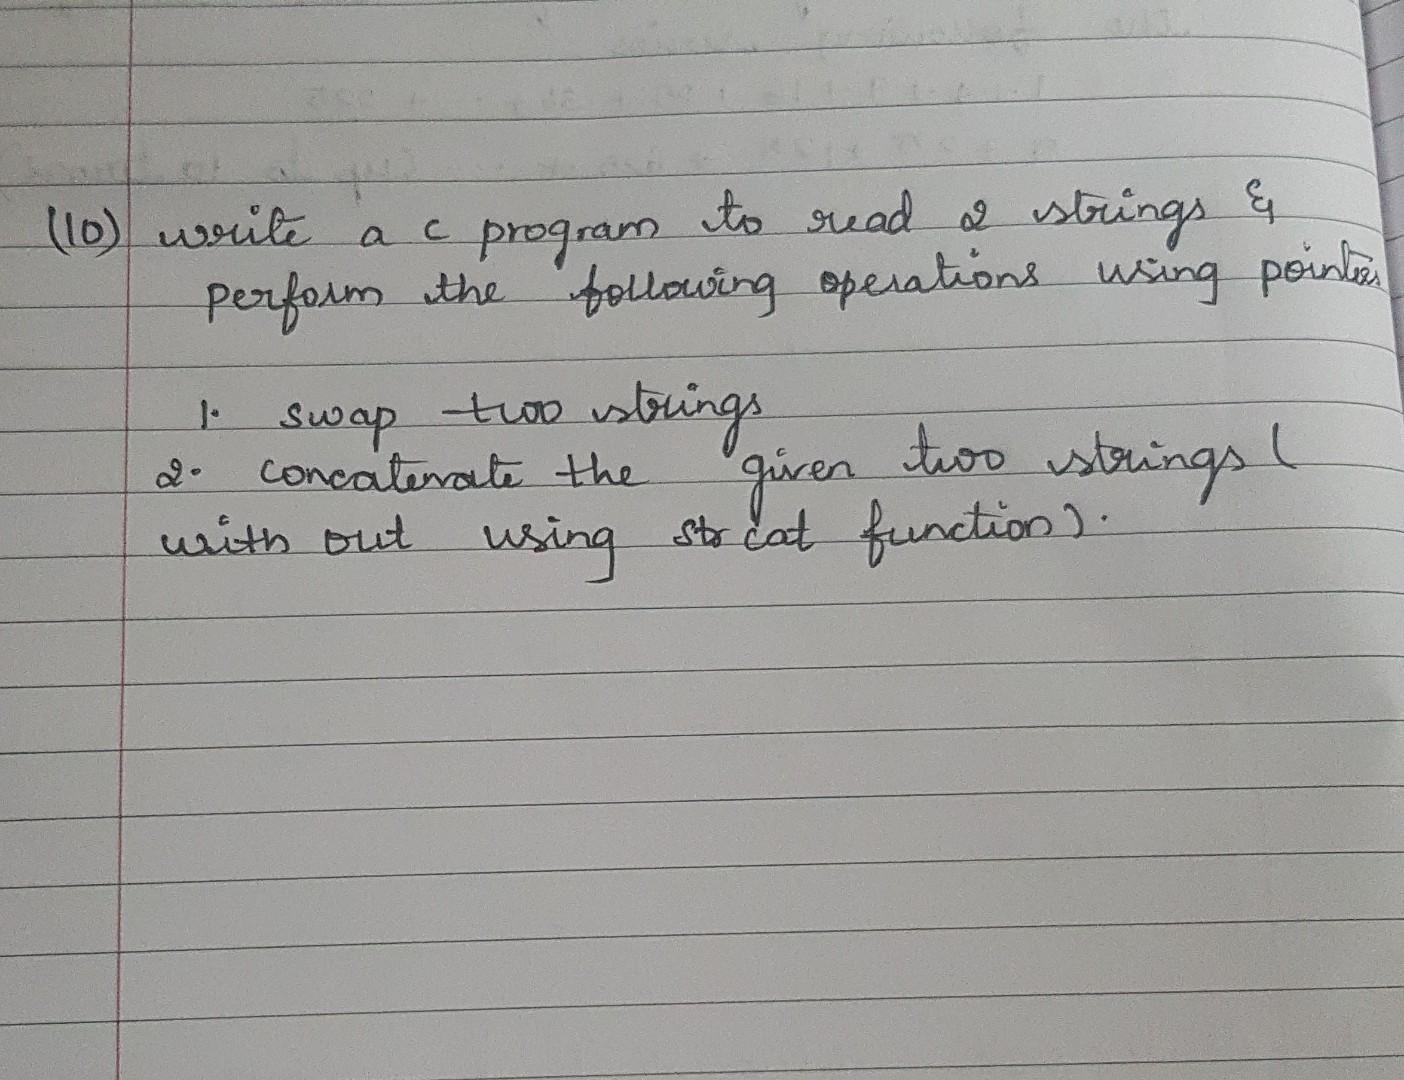 (10) write a c program to read 2 strings &
perform the following operations using pointers
1. swap two strings
2. concatenate the given two strings (
with out using strcat function).